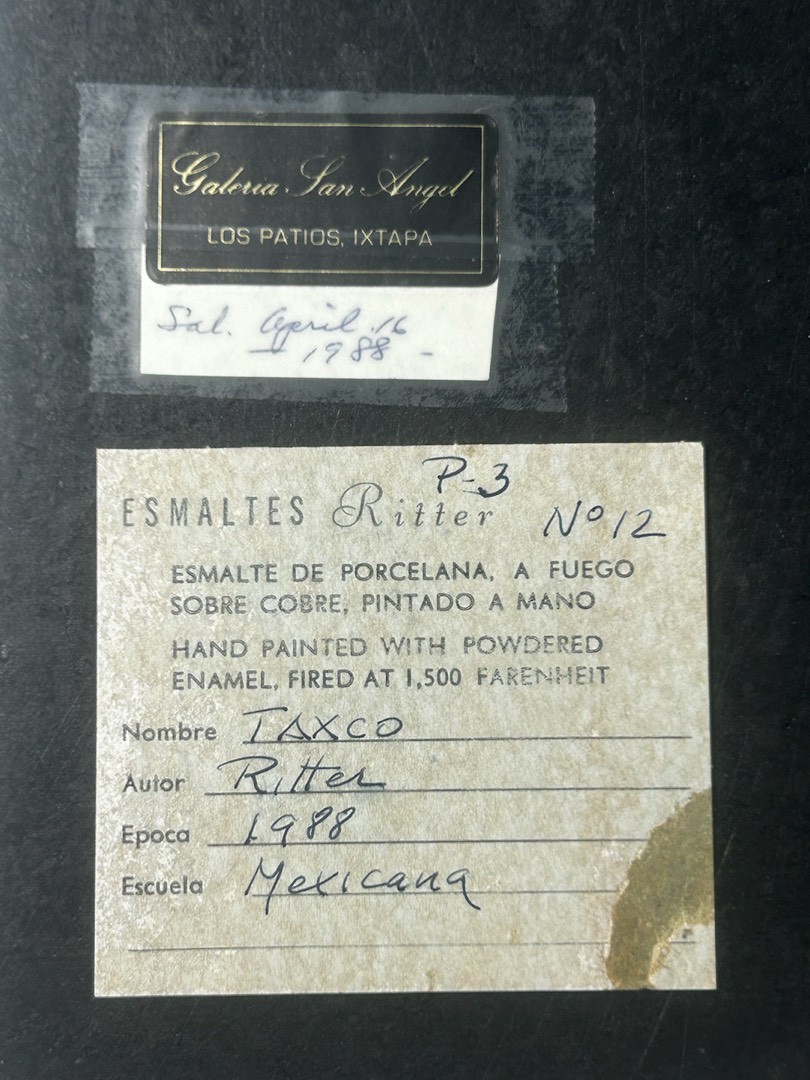 Galeria San Angel
LOS PATIOS, IXTAPA
Sat. April 16
1988 -
P-3
ESMALTES Ritter Nº 12
ESMALTE DE PORCELANA, A FUEGO
SOBRE COBRE, PINTADO A MANO
HAND PAINTED WITH POWDERED
ENAMEL, FIRED AT 1,500 FARENHEIT
Nombre TAXCO
Autor Ritter
Epoca 1988
Escuela Mexicana